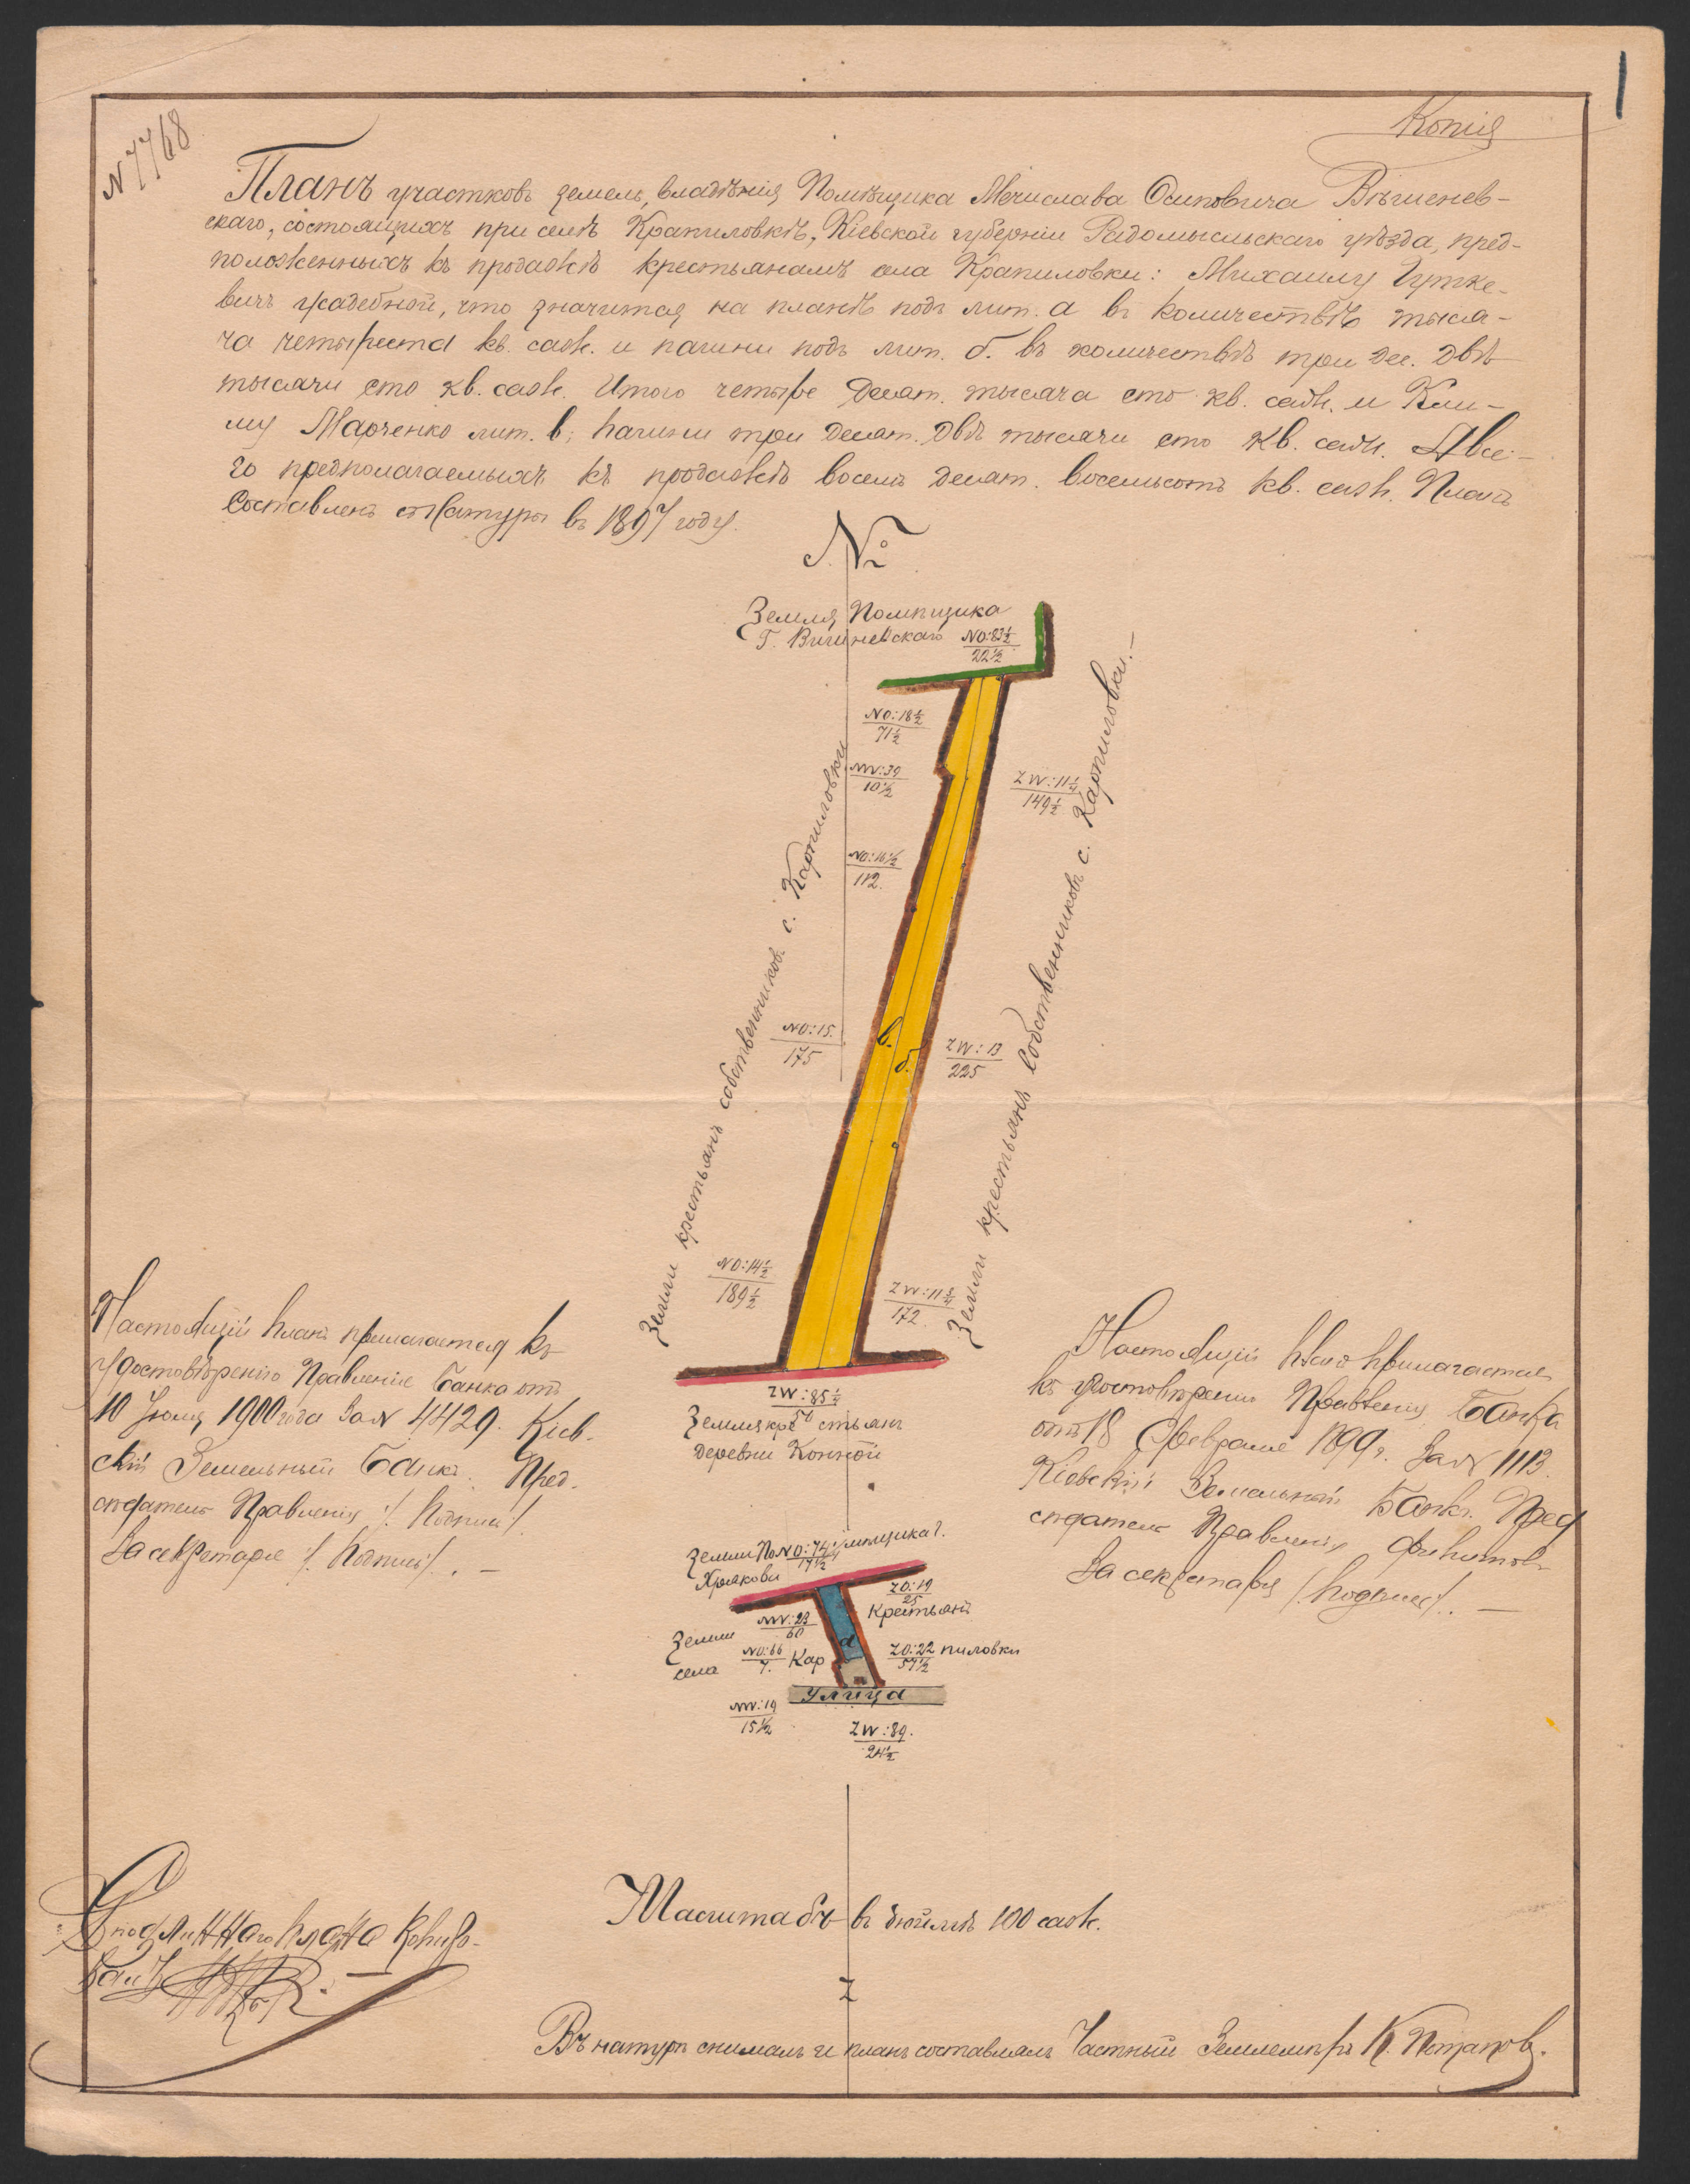 1
Копія
N 7768
Планъ участковъ земель, владѣнія Помѣщика Мечислава Осиповича Вѣшенев-
скаго, состоящихъ при селѣ Крапиловкѣ, Кіевской губерніи Радомысльскаго уѣзда, пред-
положенныхъ къ продажѣ крестьянамъ села Крапиловки: Михаилу Гутке-
вичъ усадебной, что значится на планѣ подъ лит. а въ количествѣ тыся-
ча четыреста кв. саж. и пашни подъ лит. б. въ количествѣ три дес. двѣ
тысячи сто кв. саж. Итого четыре десят. тысяча сто кв. саж. и Кли-
му Марченко лит. в, пашни три десят. двѣ тысячи сто кв. саж. А все-
го предполагаемыхъ къ продажѣ восемь десят. восемьсотъ кв. саж. Планъ
Составленъ съ натуры въ 1897 году.
No
Земля Помѣщика
Г. Вишневскаго
NO:83½
22½
NO:18½
71½
NW:39
10½
ZW:11¼
149½
NO:16½
112.
NO:15.
175
в.
б.
ZW:13
225
NO:14½
189½
ZW:11¾
172.
Земли крестьянъ собственников. с. Карпиловки
Земли крестьянъ собственниковъ с. Карпиловки.—
ZW:85½
50
Земля крестьянъ
деревни Конной
Настоящій планъ прилагается къ
удостовѣренію Правленіе Банка отъ
10 Іюля 1900 года за N 4429. Кіев-
скій Земельный Банкъ. Пред-
сѣдатель Правленія /. Подпись /.
За секретаря /. Подпись /. —
Настоящій планъ прилагается
къ удостовѣренію Правленія Банка
отъ 18 Февраля 1899 г. за N 1113.
Кіевскій Земельный Банкъ. Пред
сѣдатель Правленія
За секретаря /. Подпись /. —
Земли Помѣщика Г.
NO:74¼
17½
ZO:19
25
Крестьянъ
NW:23
60
Земли
села
NO:66
7.
Кар
а
ZO:22
57½
пиловки
Улица
NW:19
15½
ZW:89.
24½
Масштабъ въ дюймѣ 100 саж.
Съ подлиннаго плана копиро-
валъ
Z
Въ натурѣ снималъ и планъ составлялъ Частный Землемѣръ К. Потаповъ.